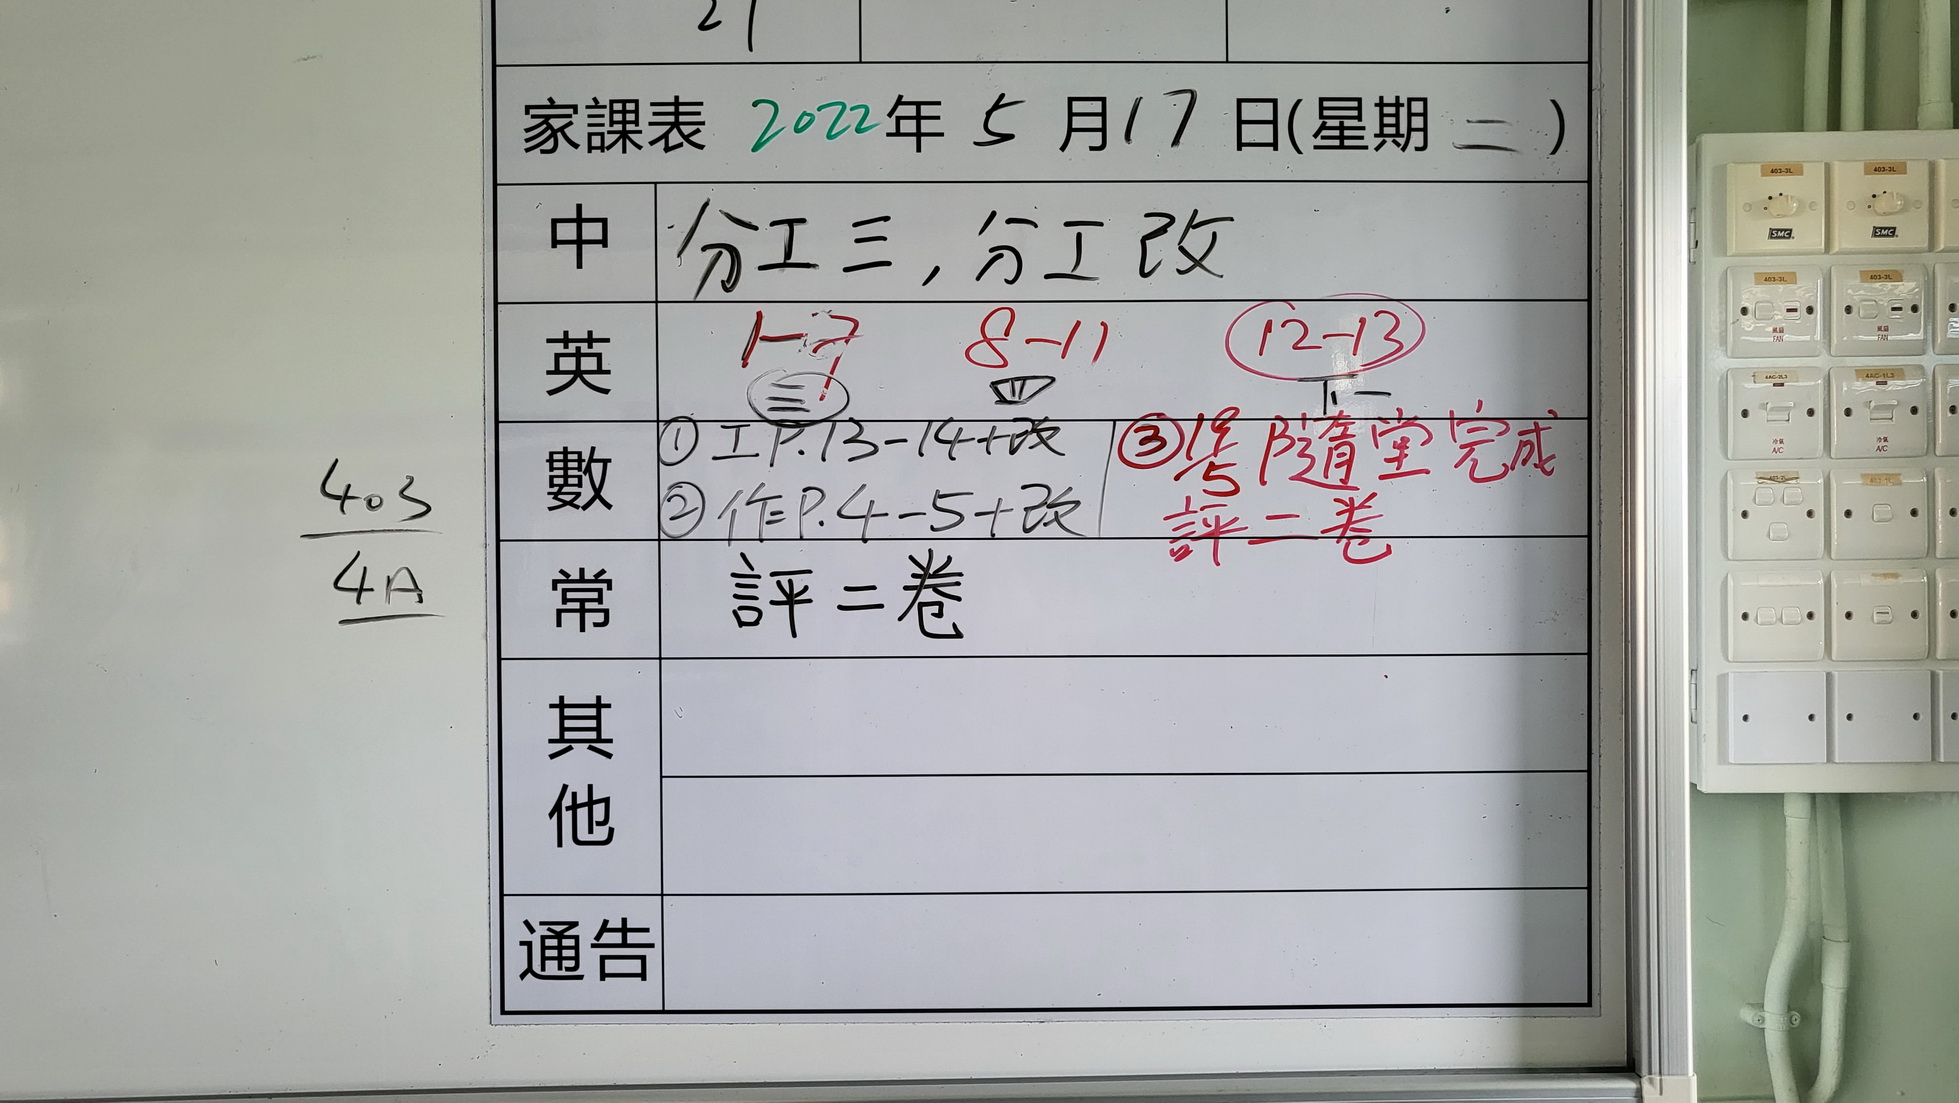 21
家課表 2022年 5 月17 日(星期 二 )
中 分工三, 分工改
英 1-7 8-11 12-13
三 四 下一
數 ①工P.13-14+改
②作P.4-5+改
③19/5 隨堂完成
評二卷
常 評二卷
其他
通告
403
4A
403-3L 403-3L
SMC SMC
403-3L 403-3L
風扇 FAN 風扇 FAN
4AC-2L3 4AC-1L3
冷氣 A/C 冷氣 A/C